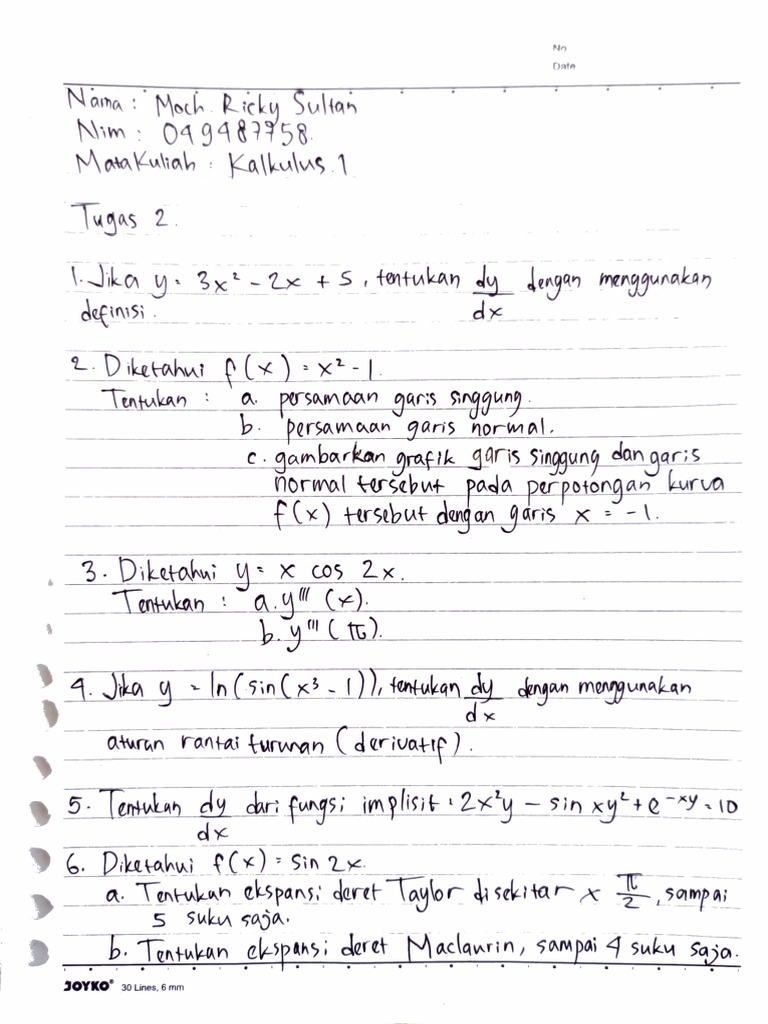 No
Date
Nama : Moch. Ricky Sultan
Nim : 049487758.
MataKuliah : Kalkulus 1
Tugas 2.
1. Jika y = 3x² - 2x + 5, tentukan dy/dx dengan menggunakan
definisi.
2. Diketahui f(x) = x² - 1.
Tentukan : a. persamaan garis singgung.
b. persamaan garis normal.
c. gambarkan grafik garis singgung dan garis
normal tersebut pada perpotongan kurva
f(x) tersebut dengan garis x = -1.
3. Diketahui y = x cos 2x.
Tentukan : a. y''' (x).
b. y''' (π).
4. Jika y = ln(sin(x³ - 1)), tentukan dy/dx dengan menggunakan
aturan rantai turunan (derivatif).
5. Tentukan dy/dx dari fungsi implisit : 2x²y - sin xy² + e^-xy = 10
6. Diketahui f(x) = sin 2x.
a. Tentukan ekspansi deret Taylor disekitar x π/2, sampai
5 suku saja.
b. Tentukan ekspansi deret Maclaurin, sampai 4 suku saja.
JOYKO® 30 Lines, 6 mm